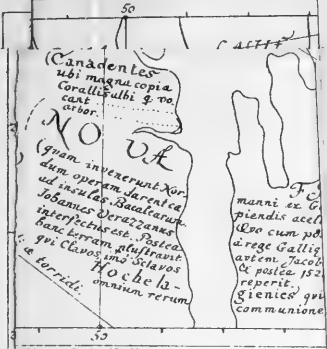 50
(Canadentes
ubi magna copia
Coralli albi q vo,
cant
arbor.
NO VÆ
(quam invenerunt Nor,
dum operam darent ca
ad insulas Bacalearum.
Johannes Verazzanus
interfectus est. Postea
hanc terram illustravit
qui Clavos, imò Sclavos
Hochela-
omnium rerum
a torridi.
manni ex G
piendis acel
Qvo cum po
à rege Galliq
avtem Jacob
& postea 152
reperit.
gienics qvi
communione
50